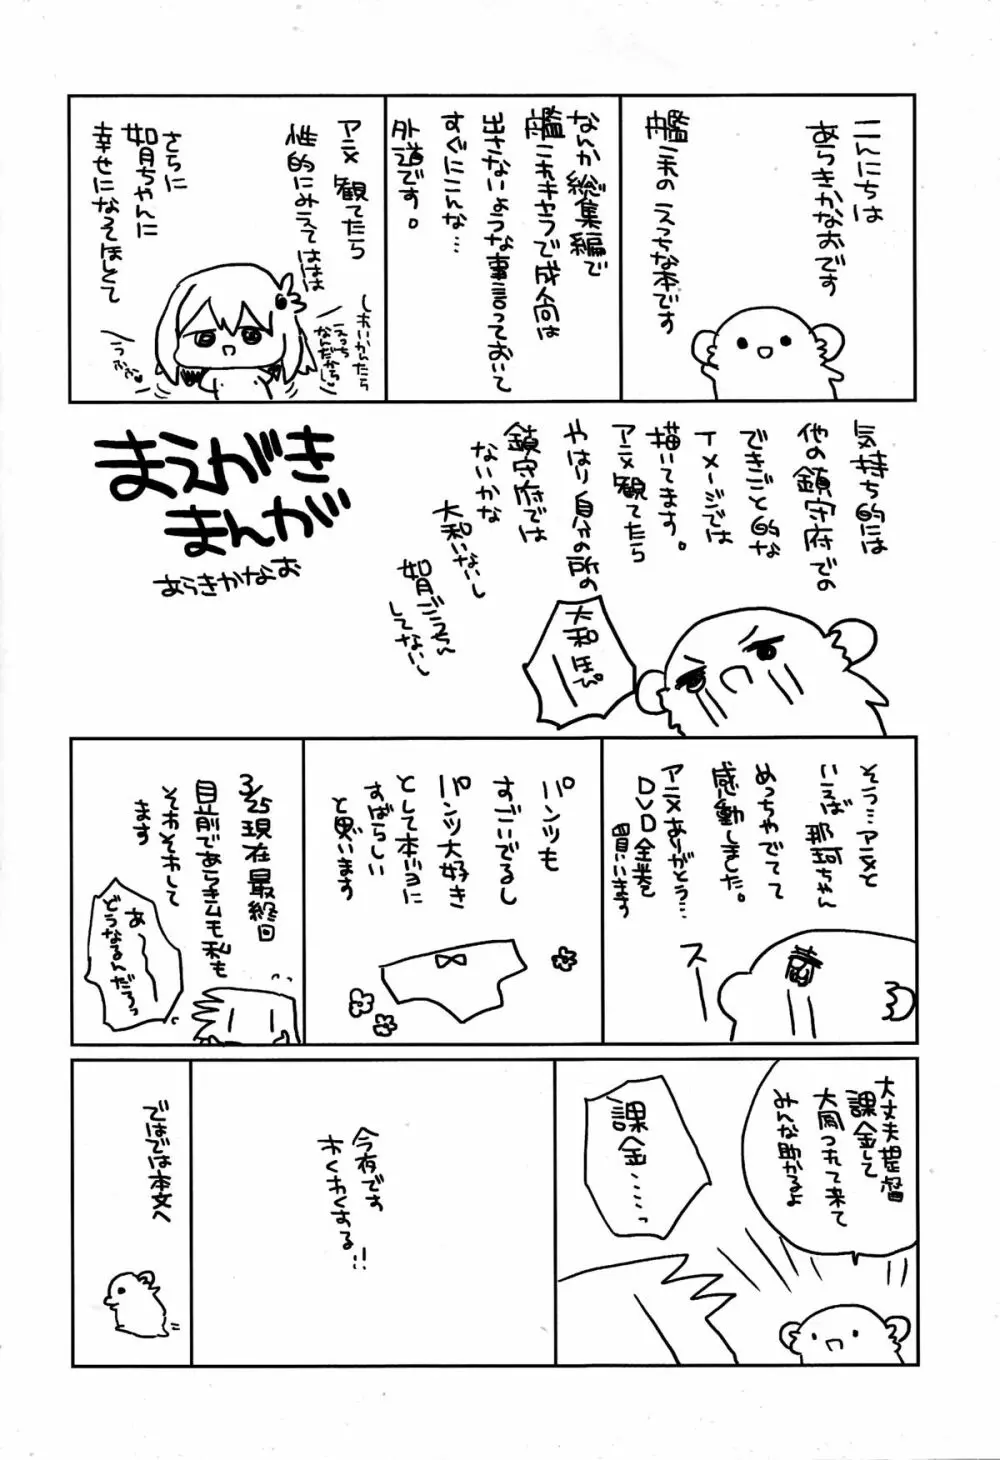 こんにちは
あらきかなおです
艦これの えっちな本です
なんか総集編で
艦これキャラで成人向は
出さないような事言っておいて
すぐにこんな…
外道です。
アニメ 観てたら
性的にみえてははは
さらに
如月ちゃんに
幸せになってほしくて
しれいかんたら
えっち
なんだから
うふふ♥
まえがき
まんが
あらきかなお
気持ち的には
他の鎮守府での
できごと的な
イメージでは
描いてます。
アニメ観てたら
やはり自分の所の
鎮守府では
ないかな
大和いないし
如月ごうちん
してないし
大和ほぴ
そう…アニメと
いえば 那珂ちゃん
めっちゃでてて
感動しました。
アニメありがとう…
DVD全巻
買います
スー
パンツも
すごいでるし
パンツ大好き
として本当に
すばらしい
と思います
3/25現在最終回
目前であらきムも私も
そわそわして
ます
あ〜〜
どうなるんだろっ
大丈夫提督
課金して
大和つれて来て
みんな助かるよ
課金……っ
今夜です
わくわくする!!
ではでは本文へ